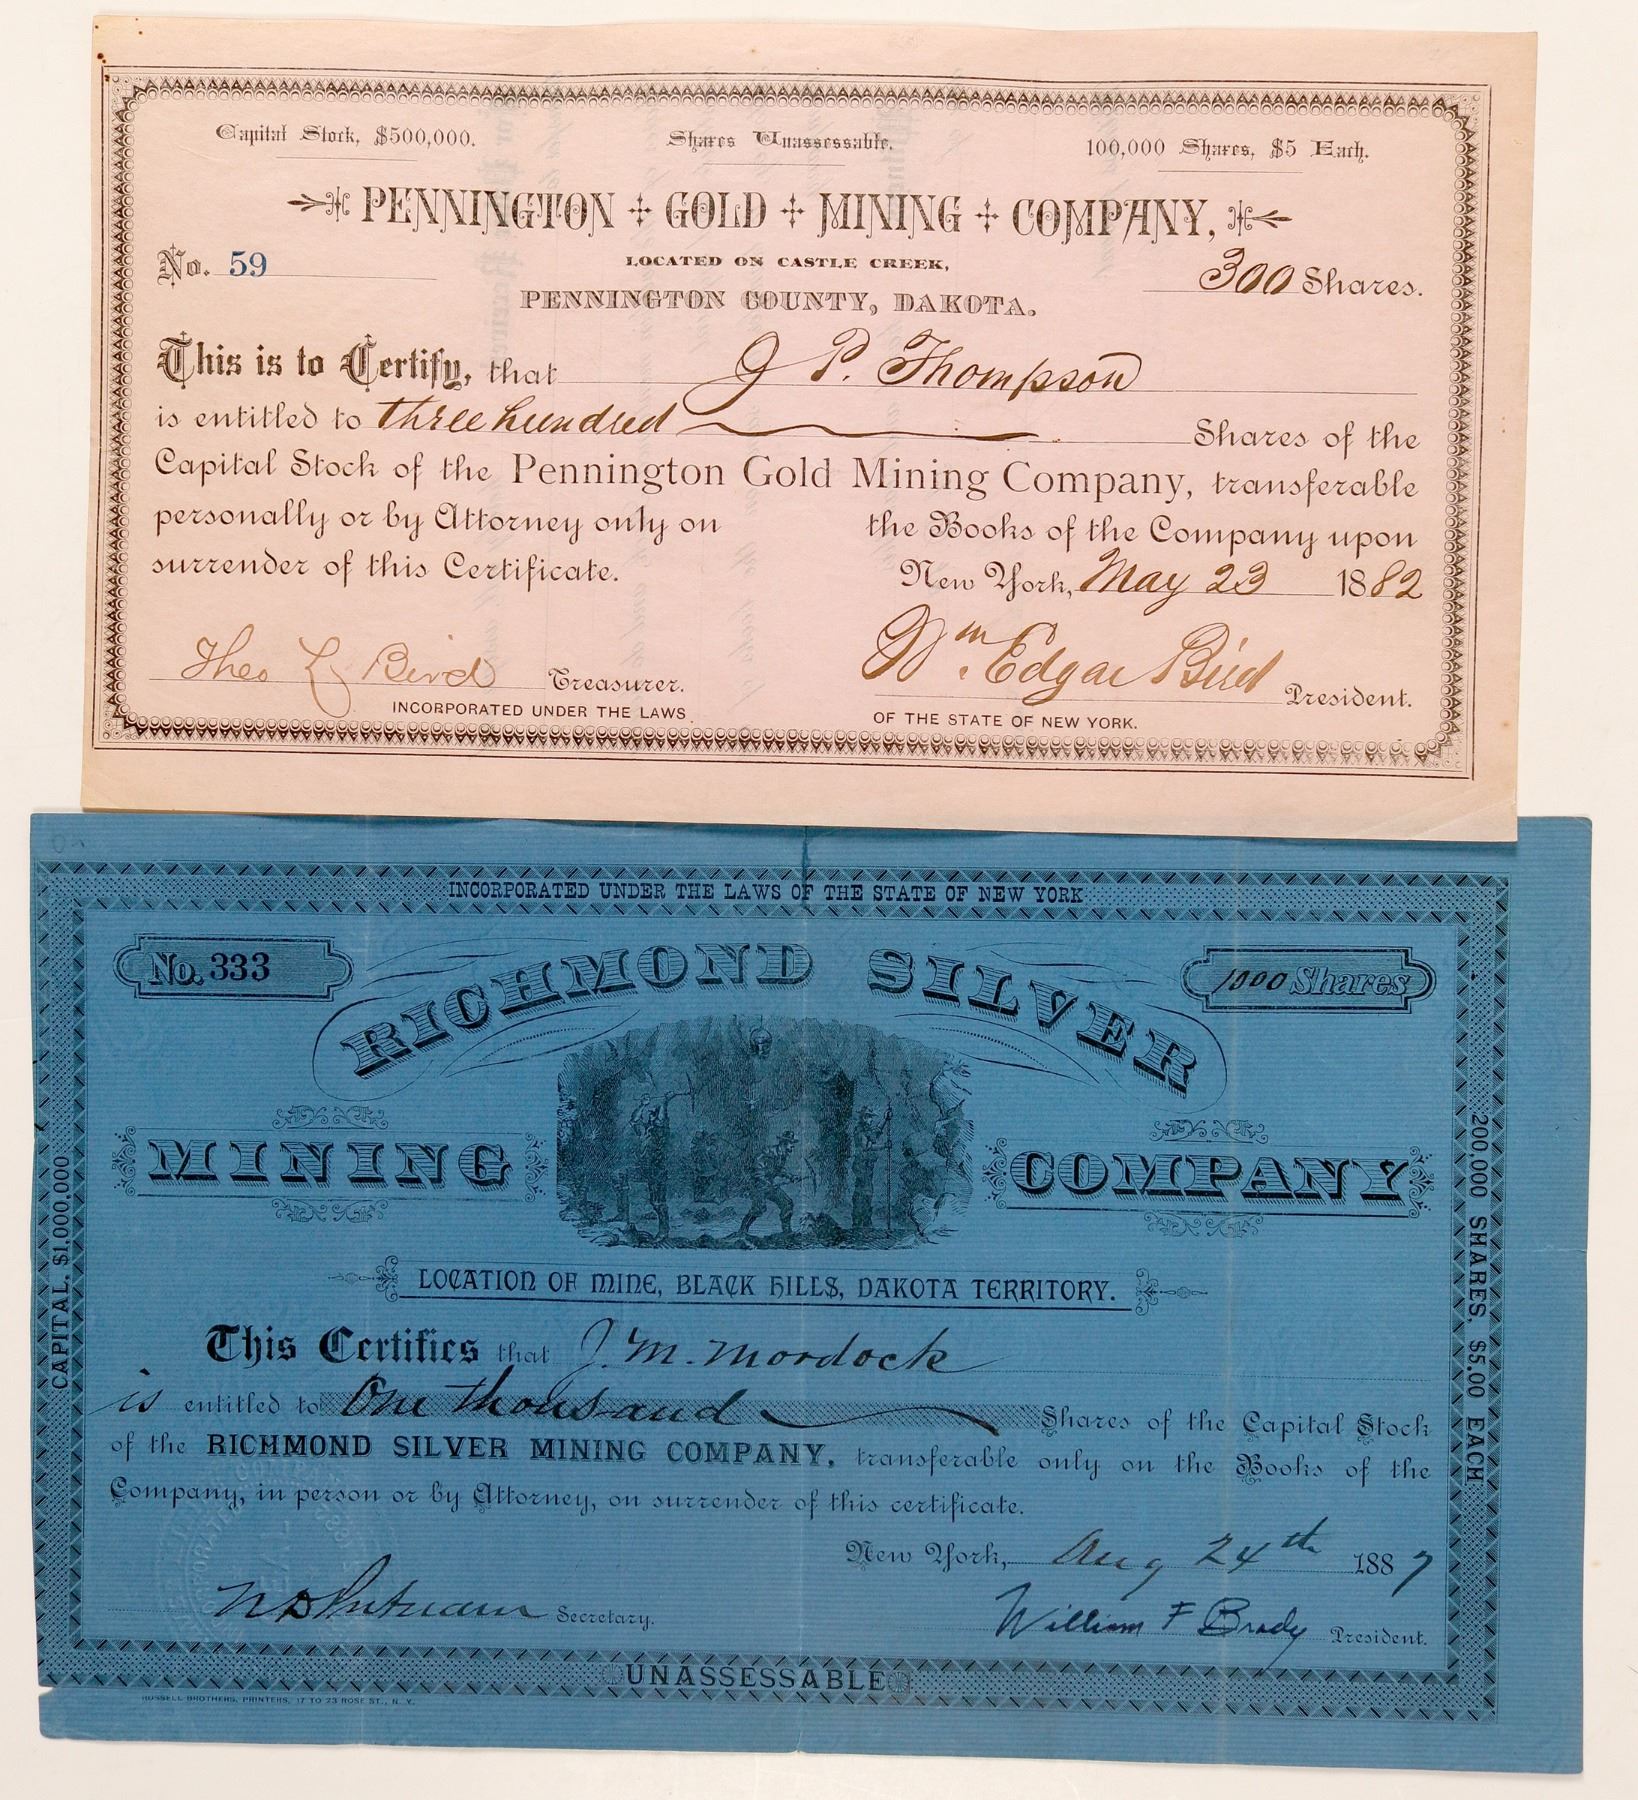 Capital Stock, $500,000. Shares Unassessable. 100,000 Shares, $5 Each.
PENNINGTON GOLD MINING COMPANY,
No. 59 LOCATED ON CASTLE CREEK, 300 Shares.
PENNINGTON COUNTY, DAKOTA.
This is to Certify, that J P. Thompson
is entitled to three hundred Shares of the
Capital Stock of the Pennington Gold Mining Company, transferable
personally or by Attorney only on the Books of the Company upon
surrender of this Certificate. New York, May 23 1882
Theo L Bird Treasurer. Wm. Edgar Bird President.
INCORPORATED UNDER THE LAWS OF THE STATE OF NEW YORK.
INCORPORATED UNDER THE LAWS OF THE STATE OF NEW YORK
No. 333 1000 Shares
RICHMOND SILVER
MINING COMPANY
CAPITAL, $1,000,000
200,000 SHARES, $5.00 EACH
LOCATION OF MINE, BLACK HILLS, DAKOTA TERRITORY.
This Certifies that J. M. Mordock
is entitled to One thousand Shares of the Capital Stock
of the RICHMOND SILVER MINING COMPANY, transferable only on the Books of the
Company, in person or by Attorney, on surrender of this certificate.
New York, Aug 24th 1887
Putnam Secretary. William F Brady President.
UNASSESSABLE
RUSSELL BROTHERS, PRINTERS, 17 TO 23 ROSE ST., N. Y.